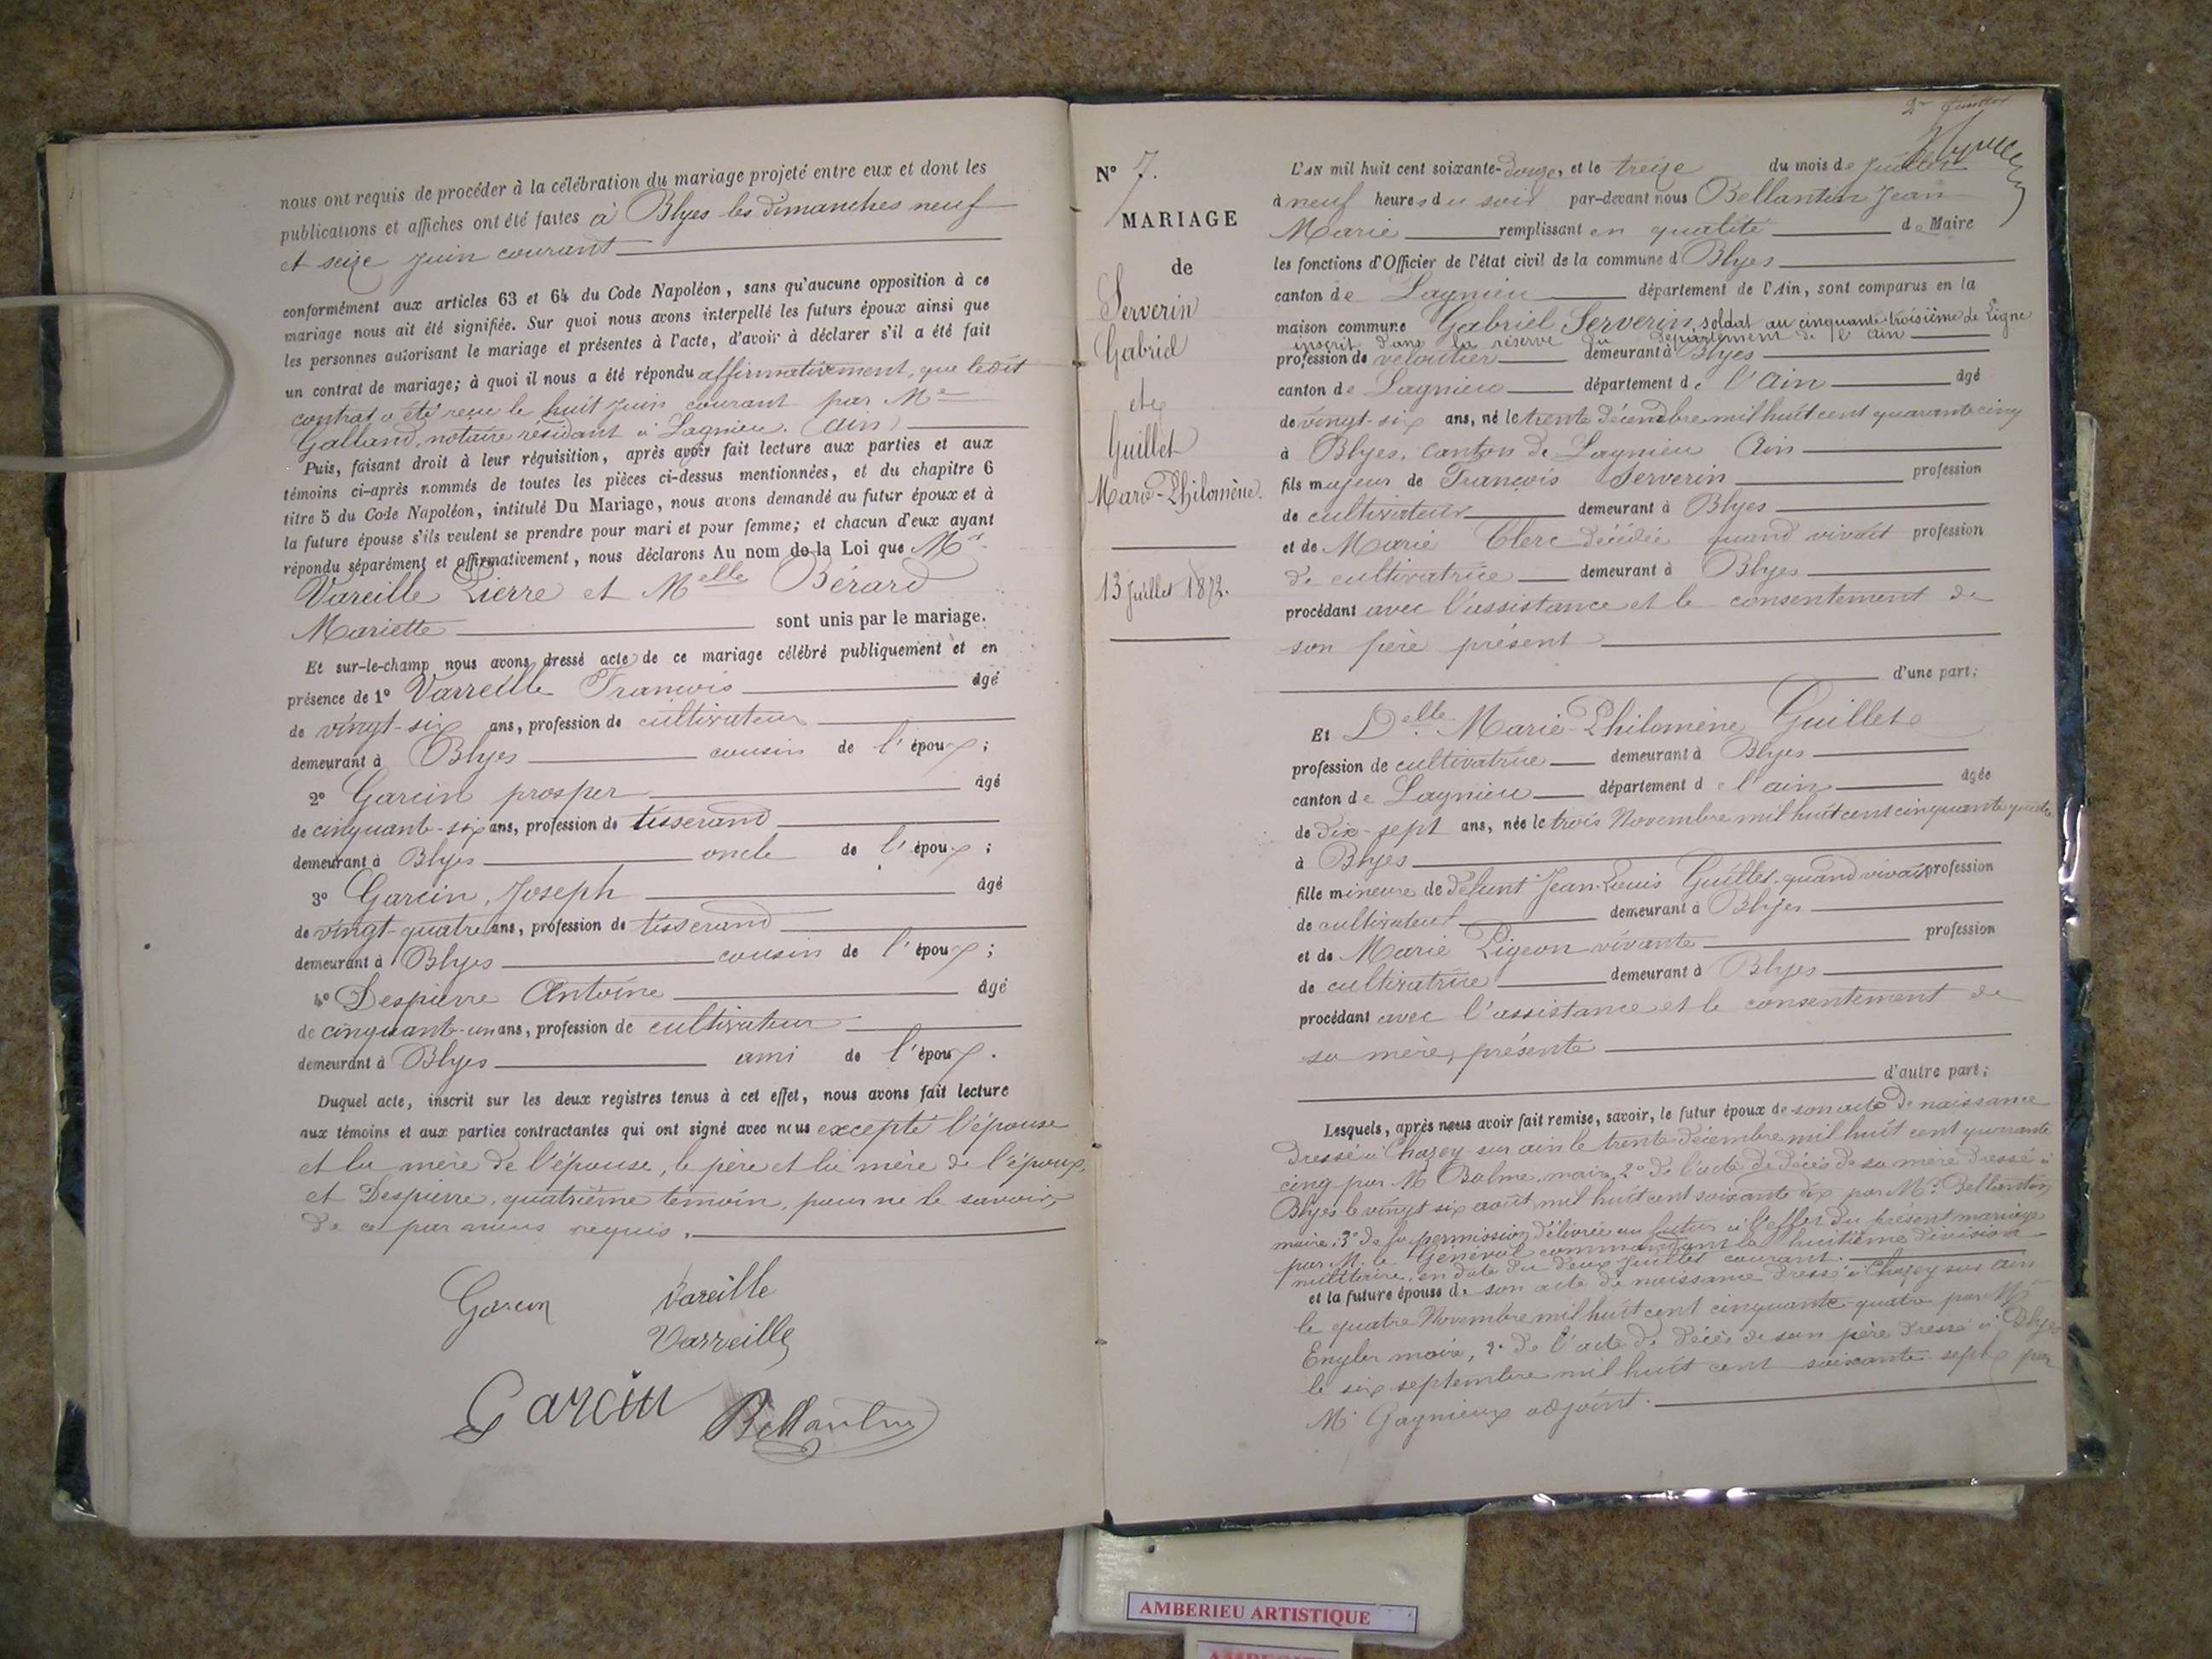 nous ont requis de procéder à la célébration du mariage projeté entre eux et dont les
publications et affiches ont été faites à Blyes les dimanches neuf
et seize juin courant
conformément aux articles 63 et 64 du Code Napoléon, sans qu'aucune opposition à ce
mariage nous ait été signifiée. Sur quoi nous avons interpellé les futurs époux ainsi que
les personnes autorisant le mariage et présentes à l'acte, d'avoir à déclarer s'il a été fait
un contrat de mariage; à quoi il nous a été répondu affirmativement, que ledit
contrat a été reçu le huit juin courant par Me
Galland, notaire résidant à Lagnieu. (Ain)
Puis, faisant droit à leur réquisition, après avoir fait lecture aux parties et aux
témoins ci-après nommés de toutes les pièces ci-dessus mentionnées, et du chapitre 6
titre 5 du Code Napoléon, intitulé Du Mariage, nous avons demandé au futur époux et à
la future épouse s'ils veulent se prendre pour mari et pour femme; et chacun d'eux ayant
répondu séparément et affirmativement, nous déclarons Au nom de la Loi que Mr
Vareille Pierre et Melle Bérard
Mariette sont unis par le mariage.
Et sur-le-champ nous avons dressé acte de ce mariage célébré publiquement et en
présence de 1° Varreille François âgé
de vingt-six ans, profession de cultivateur
demeurant à Blyes cousin de l'époux;
2° Garcin prosper âgé
de cinquante-six ans, profession de tisserand
demeurant à Blyes oncle de l'époux;
3° Garcin, Joseph âgé
de vingt-quatre ans, profession de tisserand
demeurant à Blyes cousin de l'époux;
4° Despierre Antoine âgé
de cinquante-un ans, profession de cultivateur
demeurant à Blyes ami de l'époux.
Duquel acte, inscrit sur les deux registres tenus à cet effet, nous avons fait lecture
aux témoins et aux parties contractantes qui ont signé avec nous excepté l'épouse
et la mère de l'épouse, le père et la mère de l'époux,
et Despierre, quatrième témoin, pour ne le savoir,
de ce par nous requis.
Garcin Vareille
Varreille
Garcin Bellanton
N° 7.
MARIAGE
de
Serverin
Gabriel
et
Guillet
Marie-Philomène.
13 juillet 1872.
L'AN mil huit cent soixante-douze, et le treize du mois de juillet
à neuf heures du soir par-devant nous Bellanton Jean
Marie remplissant en qualité de Maire
les fonctions d'Officier de l'état civil de la commune d Blyes
canton de Lagnieu département de l'Ain, sont comparus en la
maison commune Gabriel Serverin, soldat au cinquante-troisième de Ligne
inscrit dans la réserve du département de l'ain
profession de veloutier demeurant à Blyes
canton de Lagnieu département de l'Ain âgé
de vingt-six ans, né le trente décembre mil huit cent quarante cinq
à Blyes, canton de Lagnieu Ain
fils majeur de François Serverin profession
de cultivateur demeurant à Blyes
et de Marie Clerc décédée quand vivait profession
de cultivatrice demeurant à Blyes
procédant avec l'assistance et le consentement de
son père présent
d'une part;
Et Delle Marie-Philomène Guillet
profession de cultivatrice demeurant à Blyes
canton de Lagnieu département d l'ain âgée
de dix-sept ans, née le trois Novembre mil huit cent cinquante quatre
à Blyes
fille mineure de défunt Jean-Louis Guillet, quand vivait profession
de cultivateur demeurant à Blyes
et de Marie Pigeon vivante profession
de cultivatrice demeurant à Blyes
procédant avec l'assistance et le consentement de
sa mère, présente
d'autre part;
Lesquels, après nous avoir fait remise, savoir, le futur époux de son acte de naissance
dressé à Chazey sur ain le trente décembre mil huit cent quarante
cinq par M Balme, maire, 2° de l'acte de décès de sa mère dressé à
Blyes le vingt six août mil huit cent soixante dix par Mr. Bellanton
maire, 3° de la permission délivrée au futur à l'effet du présent mariage
par M. le Général commandant la huitième division
militaire, en date du deux juillet courant.
et la future épouse de son acte de naissance dressé à Chazey sur ain
le quatre Novembre mil huit cent cinquante-quatre par Mr
Engler maire, 2° de l'acte de décès de son père dressé à Blyes
le six septembre mil huit cent soixante sept par
Mr Gagnieux adjoint.
AMBERIEU ARTISTIQUE